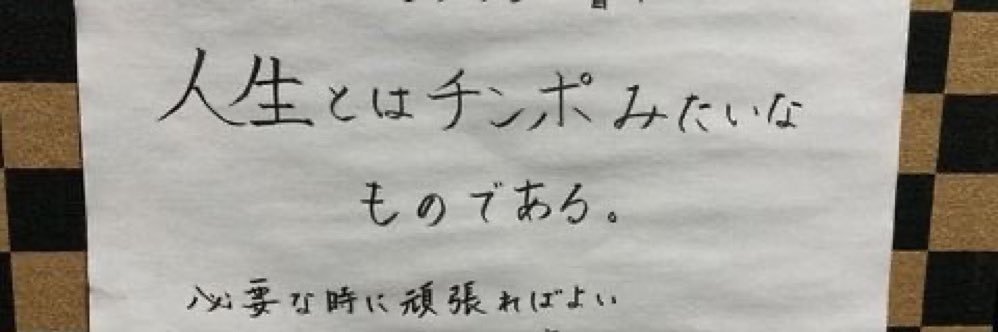 人生とはチンポみたいな
ものである。
必要な時に頑張ればよい